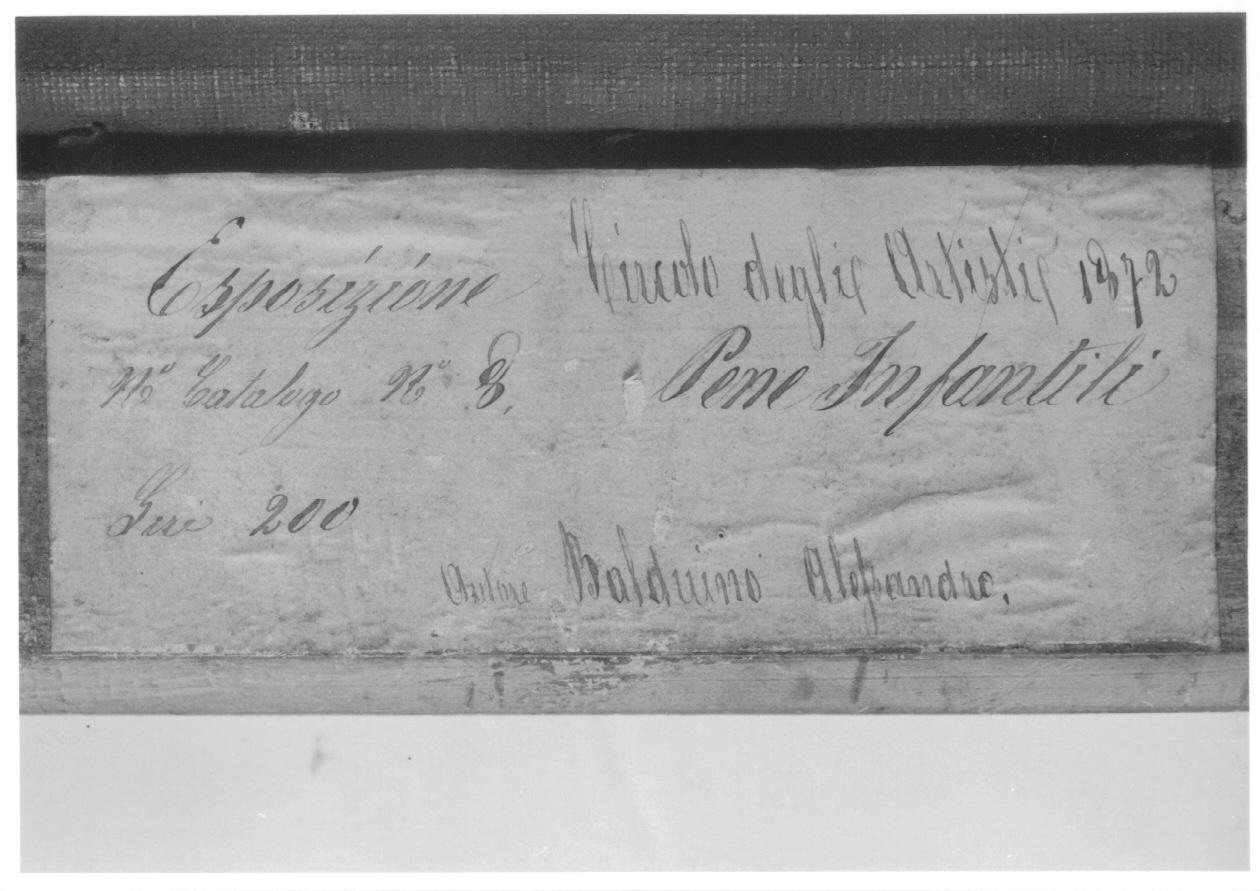 Esposizione Circolo degli Artisti 1872
No Catalogo No 8. Pene Infantili
Lire 200
Autore Balduino Alessandro.